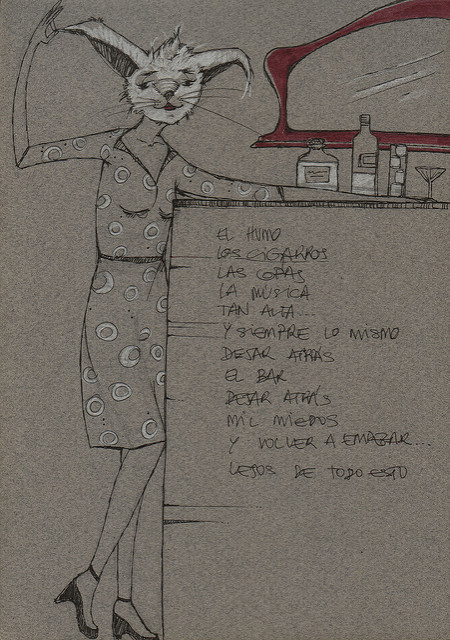 EL HUMO
LOS CIGARROS
LAS COPAS
LA MUSICA
TAN ALTA...
Y SIEMPRE LO MISMO
DEJAR ATRÁS
EL BAR
DEJAR ATRÁS
MIL MIEDOS
Y VOLVER A EMPEZAR...
LEJOS DE TODO ESTO